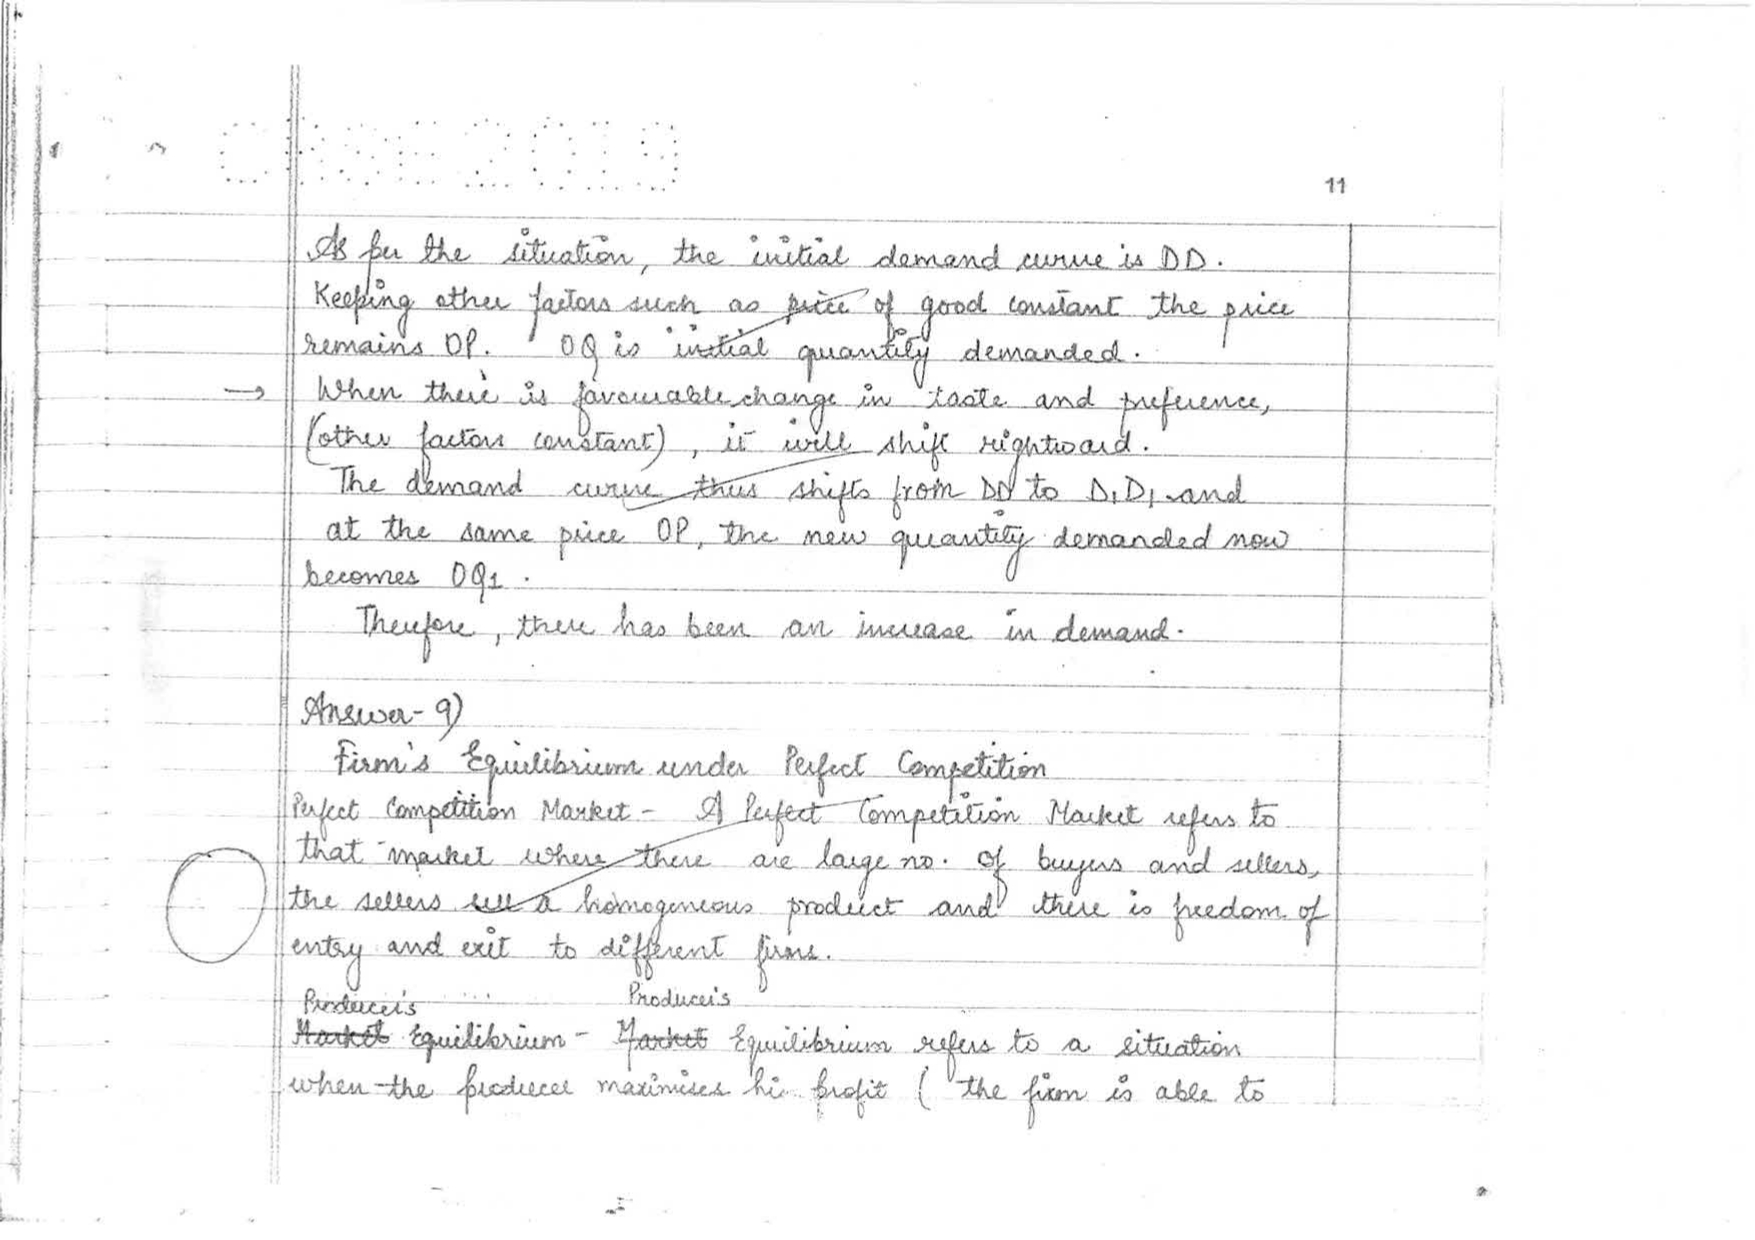 CBSE 2019
11
As per the situation, the initial demand curve is DD.
Keeping other factors such as price of good constant the price
remains OP. OQ is initial quantity demanded.
→ When there is favourable change in taste and preference,
(other factors constant), it will shift rightward.
The demand curve thus shifts from DD to D1D1 and
at the same price OP, the new quantity demanded now
becomes OQ1.
Therefore, there has been an increase in demand.
Answer-9)
Firm's Equilibrium under Perfect Competition
Perfect Competition Market - A Perfect Competition Market refers to
that market where there are large no. of buyers and sellers,
the sellers sell a homogeneous product and there is freedom of
entry and exit to different firms.
Producer's Producer's
Market Equilibrium - Market Equilibrium refers to a situation
when the producer maximises his profit ( the firm is able to